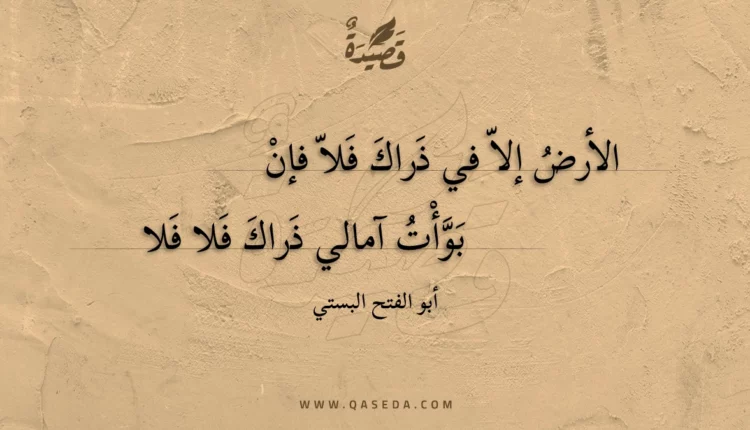 قَصِيْدَةٌ
الأرضُ إلاّ في ذَراكَ فَلاّ فإنْ
بَوَّأْتُ آمالي ذَراكَ فَلا فَلا
أبو الفتح البستي
WWW.QASEDA.COM